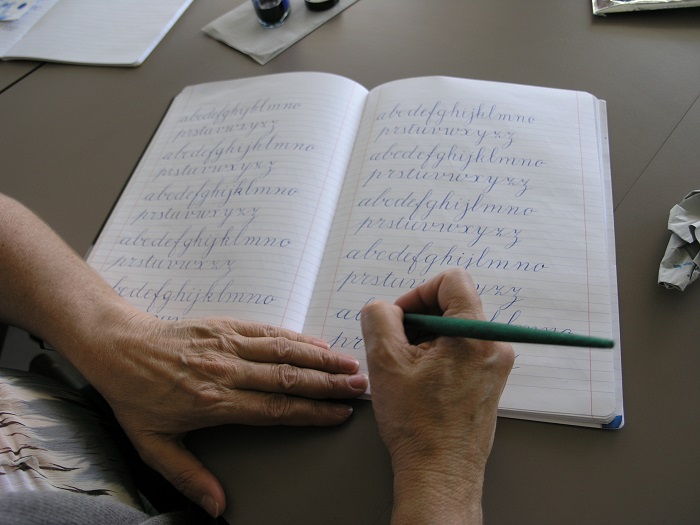 abcdefghijklmno
prstuvwxyzz
abcdefghijklmno
prstuvwxyzz
abcdefghijklmno
prstuvwxyzz
abcdefghijklmno
prstuvwxyzz
bcdefghijklmno
abcdefghijklmno
prstuvwxyzz
abcdefghijklmno
prstuvwxyzz
abcdefghijklmno
prstuvwxyzz
abcdefghijklmno
prstu
ab
pr